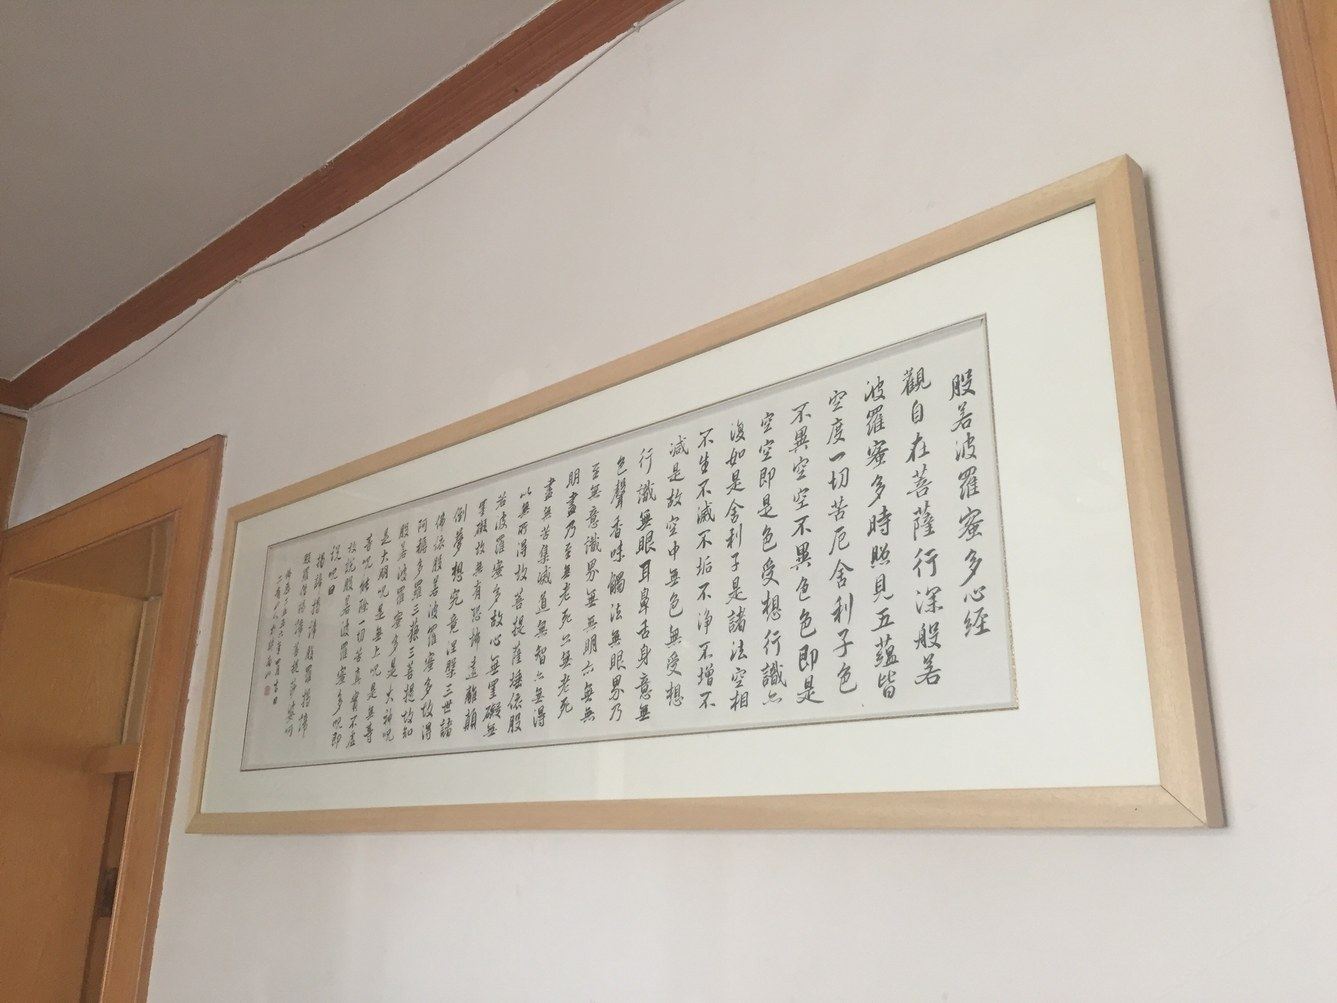 般若波羅蜜多心經
觀自在菩薩行深般若
波羅蜜多時照見五蘊皆
空度一切苦厄舍利子色
不異空空不異色色即是
空空即是色受想行識亦
復如是舍利子是諸法空相
不生不滅不垢不淨不增不
減是故空中無色無受想
行識無眼耳鼻舌身意無
色聲香味觸法無眼界乃
至無意識界無無明亦無無
明盡乃至無老死亦無老死
盡無苦集滅道無智亦無得
以無所得故菩提薩埵依般
若波羅蜜多故心無罣礙無
罣礙故無有恐怖遠離顛
倒夢想究竟涅槃三世諸
佛依般若波羅蜜多故得
阿耨多羅三藐三菩提故知
般若波羅蜜多是大神咒
是大明咒是無上咒是無等
等咒能除一切苦真實不虛
故說般若波羅蜜多咒即
說咒曰
揭諦揭諦般羅揭諦
般羅僧揭諦菩提薩婆訶